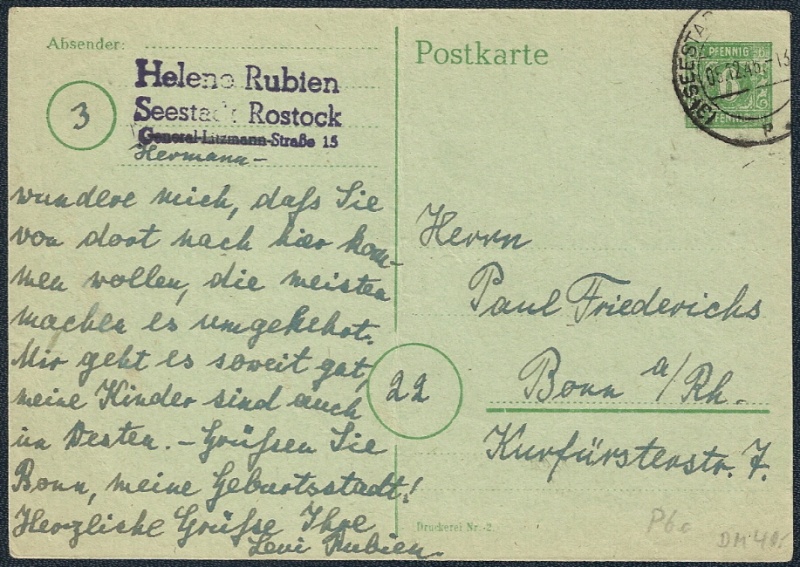 Absender:
Helene Rubien
Seestadt Rostock
General-Litzmann-Straße 15
Hermann-
3
wundere mich, daß Sie
von dort nach hier kom-
men wollen, die meisten
machen es umgekehrt.
Mir geht es soweit gut,
meine Kinder sind auch
im Westen. – Grüßen Sie
Bonn, meine Geburtsstadt!
Herzliche Grüße Ihre
Leni Rubien.
Postkarte
PFENNIG
PFENNIG
(3) SEESTADT
Herrn
Paul Friederichs
22
Bonn a/Rh.
Kurfürstenstr. 7.
Druckerei Nr. 2.
P6a
DM 40.-